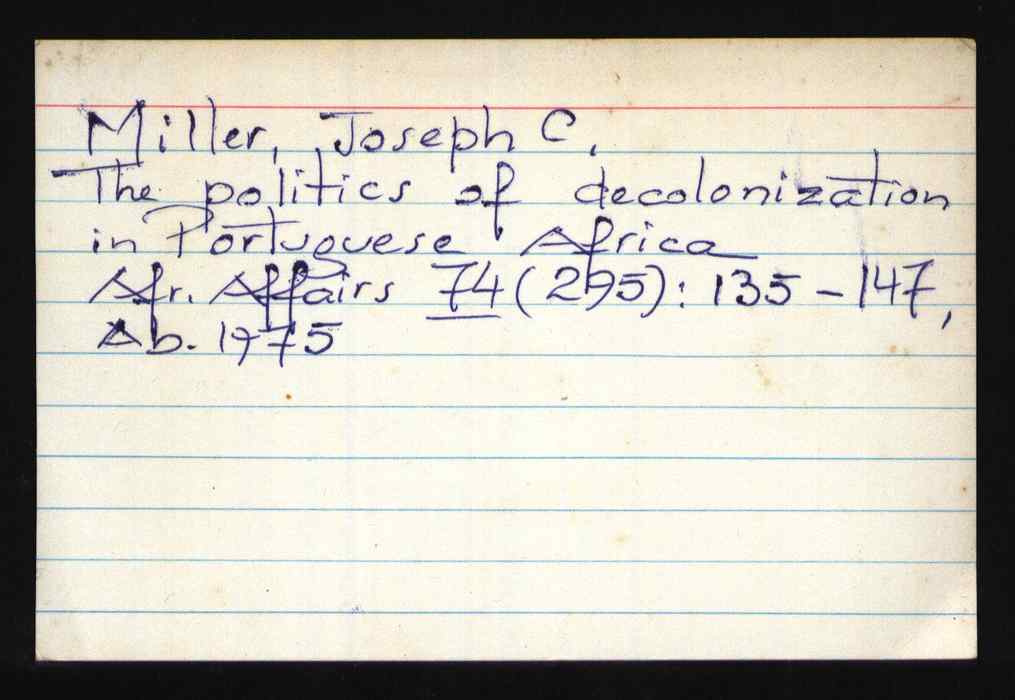 Miller, Joseph C.
The politics of decolonization
in Portuguese Africa
Afr. Affairs 74 (295): 135 - 147,
Ab. 1975